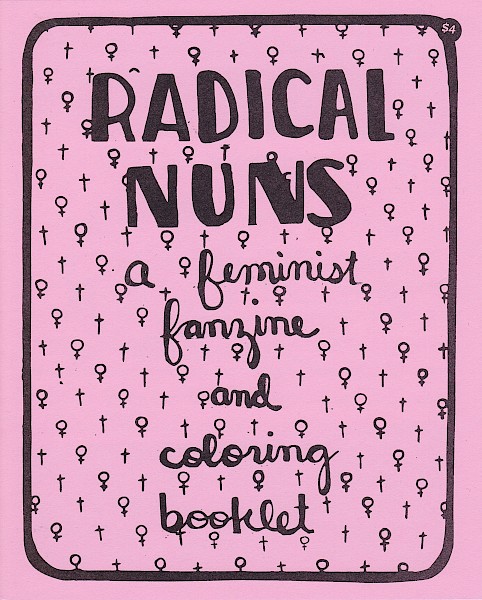 $4
RADICAL
NUNS
a feminist
fanzine
and
coloring
booklet